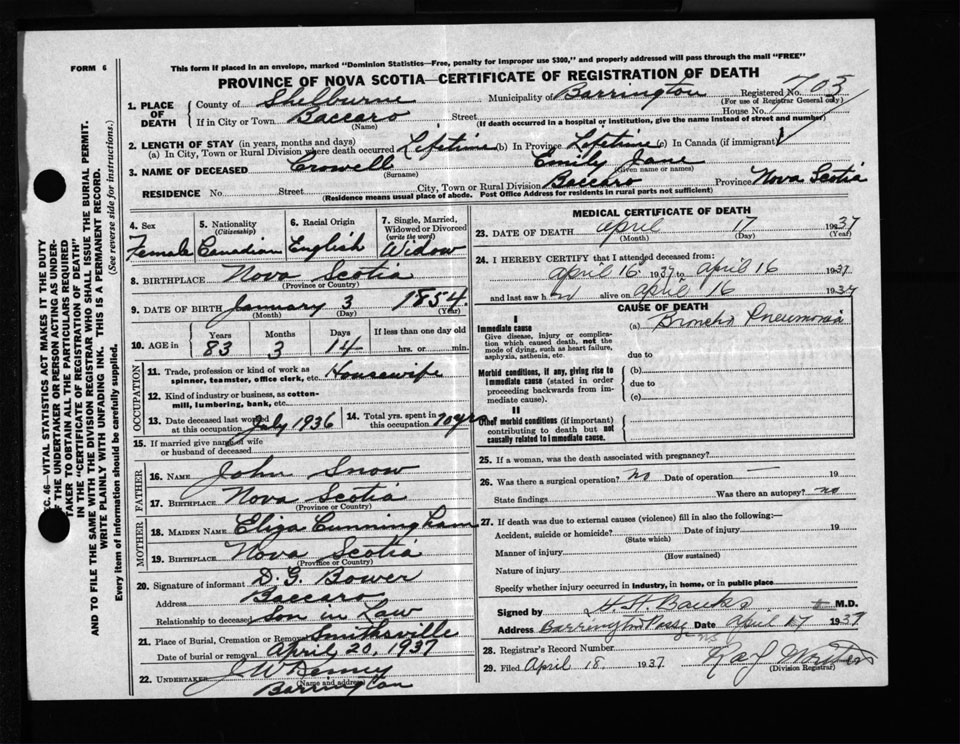 FORM 6
This form if placed in an envelope, marked "Dominion Statistics—Free, penalty for improper use $300," and properly addressed will pass through the mail "FREE"
PROVINCE OF NOVA SCOTIA—CERTIFICATE OF REGISTRATION OF DEATH
SEC. 46—VITAL STATISTICS ACT MAKES IT THE DUTY
OF THE UNDERTAKER OR PERSON ACTING AS UNDER-
TAKER TO OBTAIN ALL THE PARTICULARS REQUIRED
IN THE "CERTIFICATE OF REGISTRATION OF DEATH"
AND TO FILE THE SAME WITH THE DIVISION REGISTRAR WHO SHALL ISSUE THE BURIAL PERMIT.
WRITE PLAINLY WITH UNFADING INK. THIS IS A PERMANENT RECORD.
Every item of Information should be carefully supplied. (See reverse side for instructions.)
1. PLACE OF DEATH
County of Shelburne Municipality of Barrington Registered No. 703
(For use of Registrar General only)
If in City or Town Baccaro Street House No.
(Name) (If death occurred in a hospital or institution, give the name instead of street and number)
2. LENGTH OF STAY (in years, months and days)
(a) In City, Town or Rural Division where death occurred Lifetime (b) In Province Lifetime (c) In Canada (if immigrant)
3. NAME OF DECEASED Crowell Emily Jane
(Surname) (Given name or names)
RESIDENCE No. Street City, Town or Rural Division Baccaro Province Nova Scotia
(Residence means usual place of abode. Post Office Address for residents in rural parts not sufficient)
4. Sex 5. Nationality (Citizenship) 6. Racial Origin 7. Single, Married, Widowed or Divorced (write the word)
Female Canadian English Widow
8. BIRTHPLACE Nova Scotia
(Province or Country)
9. DATE OF BIRTH January 3 1854
(Month) (Day) (Year)
10. AGE in Years Months Days If less than one day old
83 3 14 hrs. or min.
OCCUPATION
11. Trade, profession or kind of work as spinner, teamster, office clerk, etc. Housewife
12. Kind of industry or business, as cotton-mill, lumbering, bank, etc.
13. Date deceased last worked at this occupation July 1936 14. Total yrs. spent in this occupation 70 yrs
15. If married give name of wife or husband of deceased
FATHER
16. NAME John Snow
17. BIRTHPLACE Nova Scotia
(Province or Country)
MOTHER
18. MAIDEN NAME Eliza Cunningham
19. BIRTHPLACE Nova Scotia
(Province or Country)
20. Signature of informant D. G. Bower
Address Baccaro
Relationship to deceased Son in Law
21. Place of Burial, Cremation or Removal Smithsville
Date of burial or removal April 20, 1937
22. UNDERTAKER J W
(Name and address)
Barrington
MEDICAL CERTIFICATE OF DEATH
23. DATE OF DEATH April 17 1937
(Month) (Day) (Year)
24. I HEREBY CERTIFY that I attended deceased from:
April 16 1937 to April 16 1937
and last saw h er alive on April 16 1937
CAUSE OF DEATH
I
Immediate cause
Give disease, injury or complication which caused death, not the mode of dying, such as heart failure, asphyxia, asthenia, etc.
(a) Broncho Pneumonia
due to
Morbid conditions, if any, giving rise to immediate cause (stated in order proceeding backwards from immediate cause).
(b)
due to
(c)
II
Other morbid conditions (if important) contributing to death but not causally related to immediate cause.
25. If a woman, was the death associated with pregnancy?
26. Was there a surgical operation? no Date of operation — 19
State findings Was there an autopsy? no
27. If death was due to external causes (violence) fill in also the following:—
Accident, suicide or homicide? Date of injury 19
(State which)
Manner of injury
(How sustained)
Nature of injury
Specify whether injury occurred in industry, in home, or in public place
Signed by H. H. Banks M.D.
Address Barrington Passg NS Date April 17 1937
28. Registrar's Record Number
29. Filed April 18 1937
(Division Registrar)